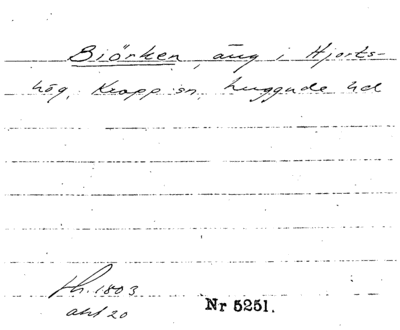 Biörken, äng i Hjorts-
hög, Kropp sn, Luggude hd
Lh. 1803
akt 20
Nr 5251.